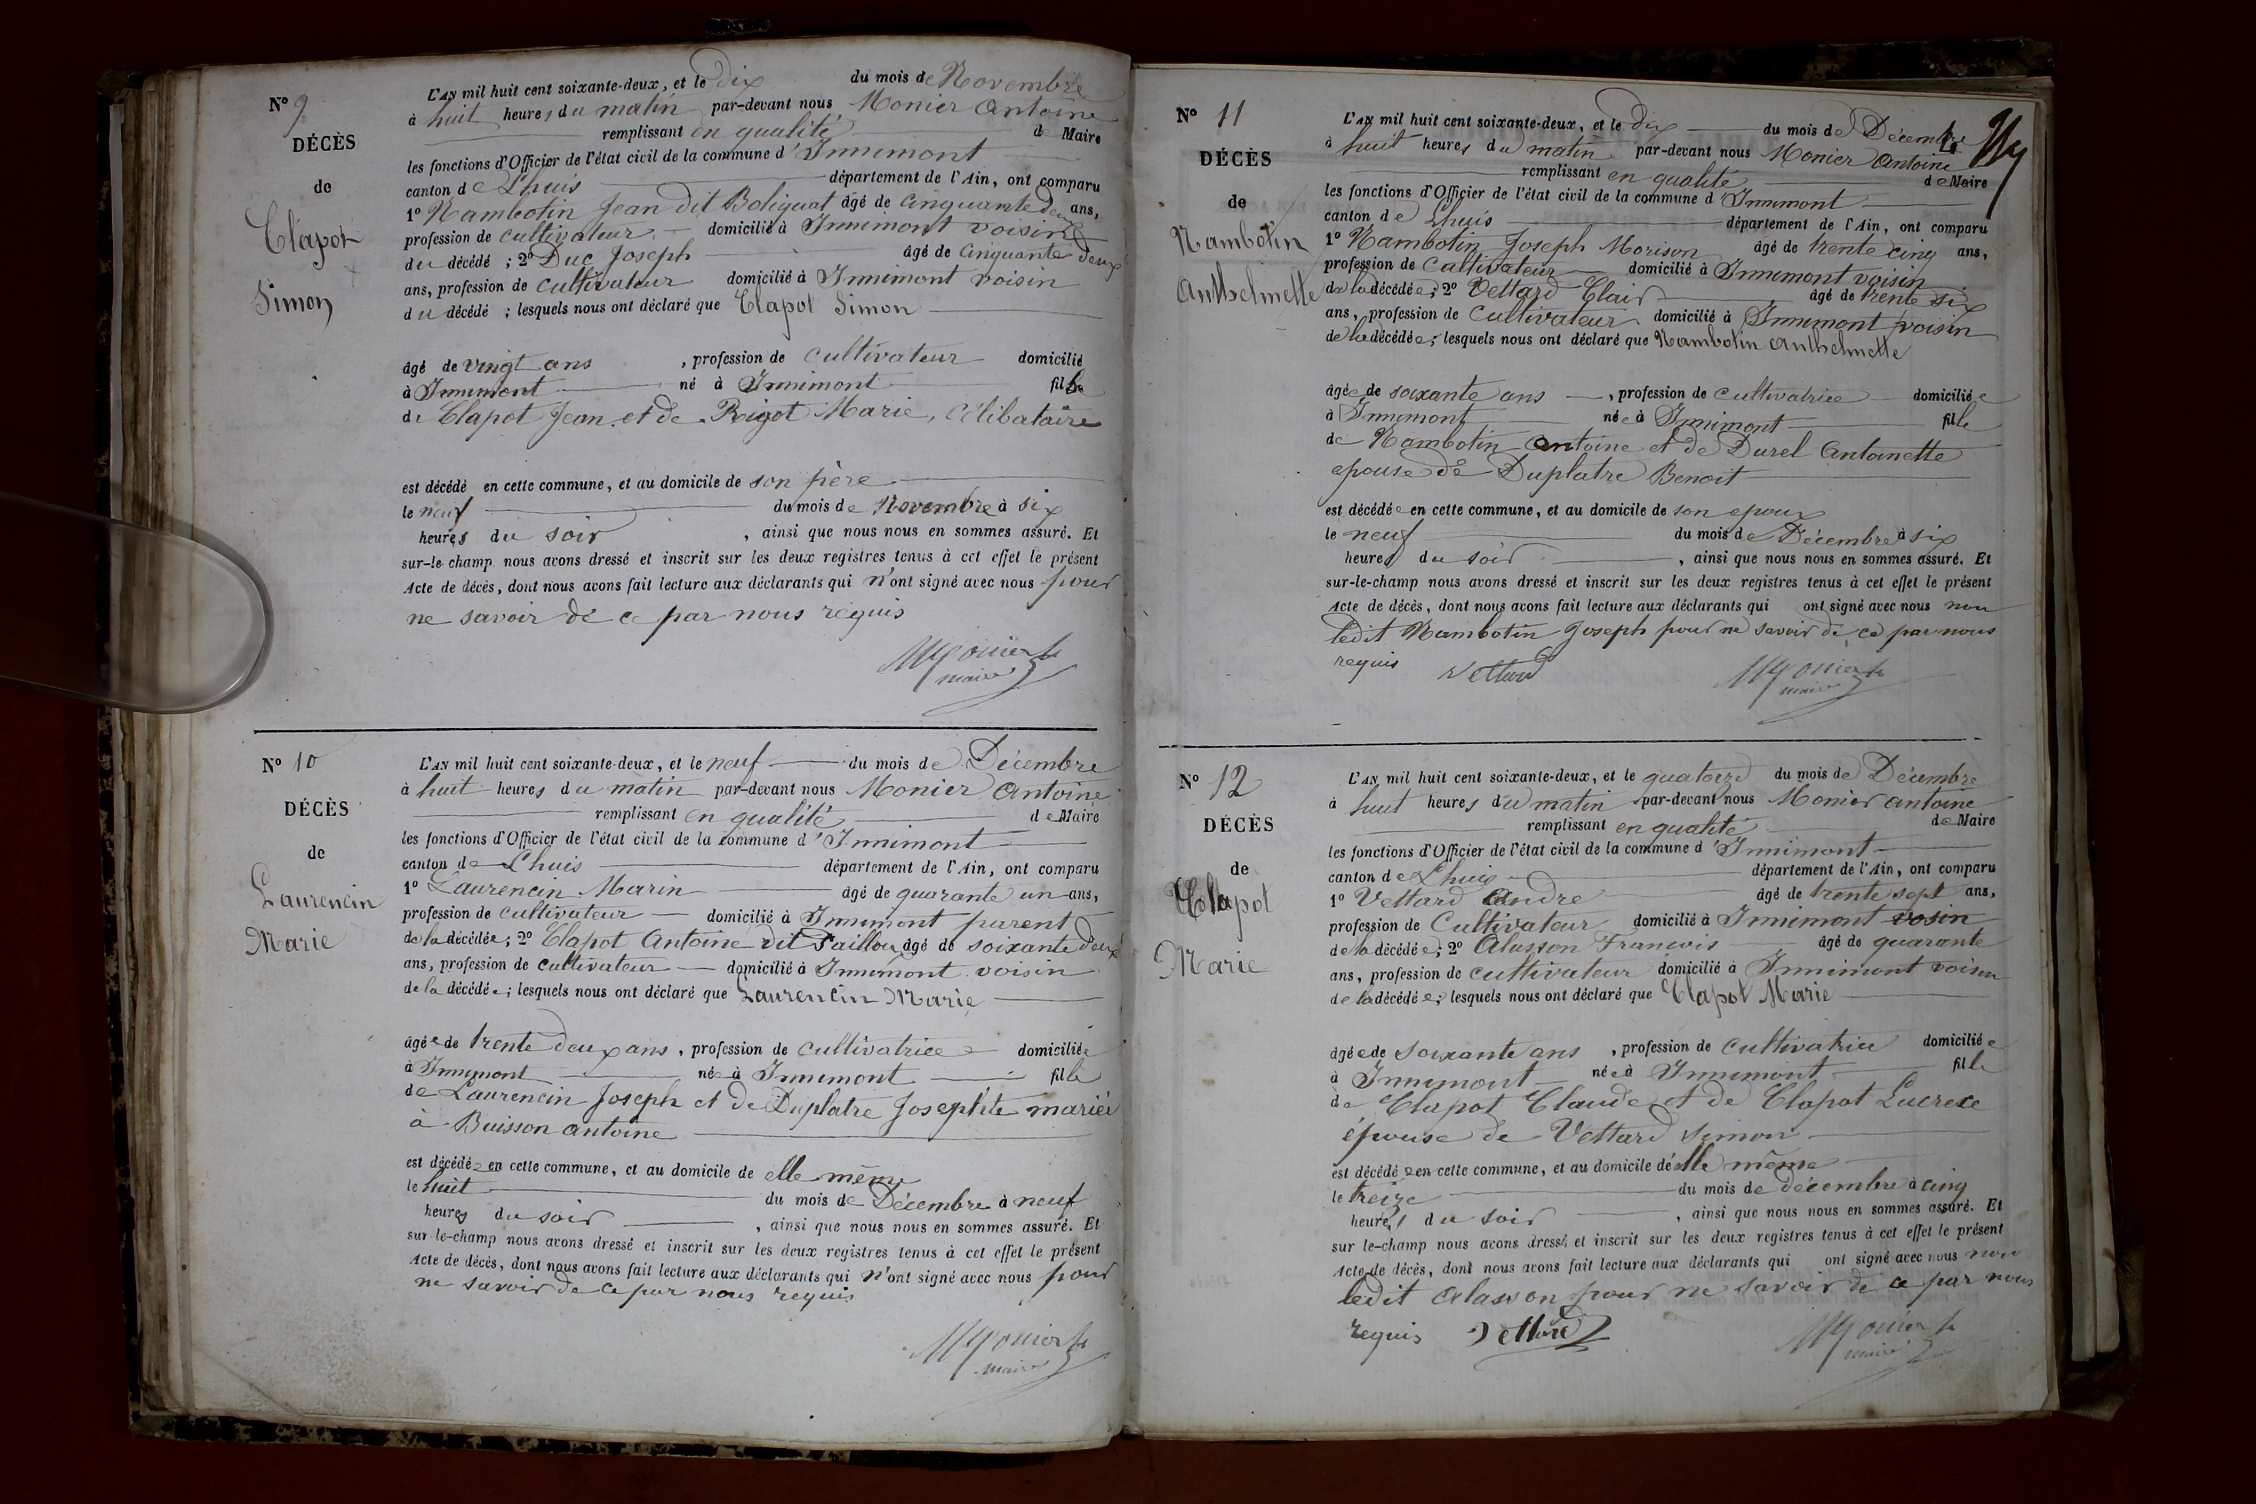 N° 9
DÉCÈS
de
Clapot
Simon
L'AN mil huit cent soixante-deux, et le dix du mois de Novembre
à huit heures du matin par-devant nous Monier Antoine
remplissant en qualité de Maire
les fonctions d'Officier de l'état civil de la commune d'Innimont
canton de Lhuis département de l'Ain, ont comparu
1° Nambotin Jean dit Boliquat âgé de cinquante deux ans,
profession de cultivateur domicilié à Innimont voisin
du décédé ; 2° Duc Joseph âgé de cinquante deux
ans, profession de cultivateur domicilié à Innimont voisin
du décédé ; lesquels nous ont déclaré que Clapot Simon
âgé de vingt ans , profession de cultivateur domicilié
à Innimont né à Innimont fils
de Clapot Jean et de Rigot Marie, célibataire
est décédé en cette commune, et au domicile de son père
le neuf du mois de Novembre à six
heures du soir , ainsi que nous nous en sommes assuré. Et
sur-le-champ nous avons dressé et inscrit sur les deux registres tenus à cet effet le présent
Acte de décès, dont nous avons fait lecture aux déclarants qui n'ont signé avec nous pour
ne savoir de ce par nous requis
Monier
maire
N° 10
DÉCÈS
de
Laurencin
Marie
L'AN mil huit cent soixante-deux, et le neuf du mois de Décembre
à huit heures du matin par-devant nous Monier Antoine
remplissant en qualité de Maire
les fonctions d'Officier de l'état civil de la commune d'Innimont
canton de Lhuis département de l'Ain, ont comparu
1° Laurencin Marin âgé de quarante un ans,
profession de cultivateur domicilié à Innimont parent
de la décédée ; 2° Clapot Antoine dit Paillou âgé de soixante deux
ans, profession de cultivateur domicilié à Innimont voisin
de la décédée ; lesquels nous ont déclaré que Laurencin Marie
âgée de trente deux ans , profession de cultivatrice domiciliée
à Innimont née à Innimont fille
de Laurencin Joseph et de Duplatre Josephte mariée
à Buisson antoine
est décédée en cette commune, et au domicile de elle même
le huit du mois de Décembre à neuf
heures du soir , ainsi que nous nous en sommes assuré. Et
sur-le-champ nous avons dressé et inscrit sur les deux registres tenus à cet effet le présent
Acte de décès, dont nous avons fait lecture aux déclarants qui n'ont signé avec nous pour
ne savoir de ce par nous requis
Monier
maire
N° 11
DÉCÈS
de
Nambotin
Anthelmette
L'AN mil huit cent soixante-deux, et le dix du mois de Décembre
à huit heures du matin par-devant nous Monier Antoine
remplissant en qualité de Maire
les fonctions d'Officier de l'état civil de la commune d'Innimont
canton de Lhuis département de l'Ain, ont comparu
1° Nambotin Joseph Morison âgé de trente cinq ans,
profession de Cultivateur domicilié à Innimont voisin
de la décédée ; 2° Vettard Clair âgé de trente six
ans, profession de Cultivateur domicilié à Innimont voisin
de la décédée ; lesquels nous ont déclaré que Nambotin Anthelmette
âgée de soixante ans , profession de cultivatrice domiciliée
à Innimont née à Innimont fille
de Nambotin Antoine et de Durel Antoinette
epouse de Duplatre Benoit
est décédée en cette commune, et au domicile de son epoux
le neuf du mois de Décembre à six
heures du soir , ainsi que nous nous en sommes assuré. Et
sur-le-champ nous avons dressé et inscrit sur les deux registres tenus à cet effet le présent
Acte de décès, dont nous avons fait lecture aux déclarants qui ont signé avec nous non
ledit Nambotin Joseph pour ne savoir de ce par nous
requis Vettard Monier
maire
N° 12
DÉCÈS
de
Clapot
Marie
L'AN mil huit cent soixante-deux, et le quatorze du mois de Décembre
à huit heures du matin par-devant nous Monier antoine
remplissant en qualité de Maire
les fonctions d'Officier de l'état civil de la commune d'Innimont
canton de Lhuis département de l'Ain, ont comparu
1° Vettard Andre âgé de trente sept ans,
profession de Cultivateur domicilié à Innimont voisin
de la décédée ; 2° Alasson Francois âgé de quarante
ans, profession de cultivateur domicilié à Innimont voisin
de la décédée ; lesquels nous ont déclaré que Clapot Marie
âgée de soixante ans , profession de cultivatrice domiciliée
à Innimont née à Innimont fille
de Clapot Claude et de Clapot Lucrece
épouse de Vettard Simon
est décédée en cette commune, et au domicile d'elle même
le treize du mois de décembre à cinq
heures du soir , ainsi que nous nous en sommes assuré. Et
sur le-champ nous avons dressé et inscrit sur les deux registres tenus à cet effet le présent
Acte de décès, dont nous avons fait lecture aux déclarants qui ont signé avec nous non
ledit Alasson pour ne savoir de ce par nous
requis Vettard Monier
maire